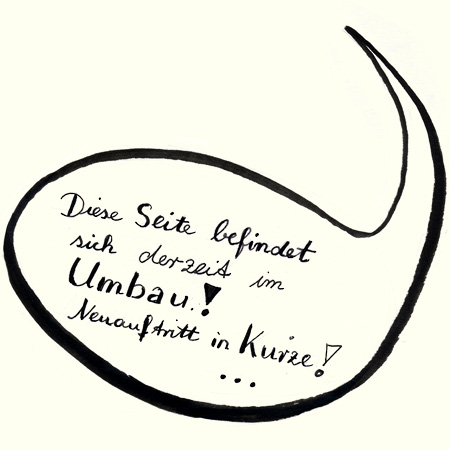 Diese Seite befindet
sich derzeit im
Umbau.!
Neuauftritt in Kürze!
...